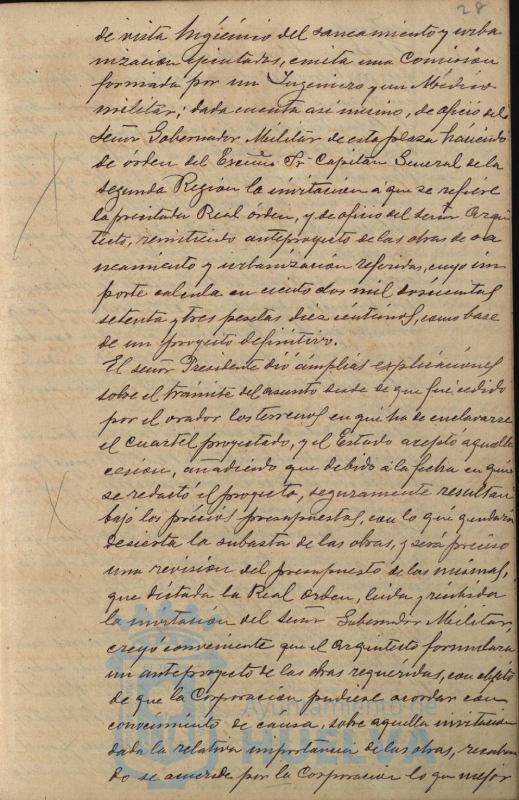 28
de vista higiénico del saneamiento y urba
nización ejecutadas, emita una Comisión
formada por un Ingeniero y un Médico
militar; dada cuenta asi mismo, de oficio del
Señor Gobernador Militar de esta plaza haciendo
de órden del Excmo Sr Capitan General de la
segunda Region la invitacion a que se refiere
la precitada Real órden, y de oficio del señor Arqui
tecto, remitiendo anteproyecto de las obras de sa
neamiento y urbanización referidas, cuyo im
porte calcula en ciento dos mil doscientas
setenta y tres pesetas diez céntimos, como base
de un proyecto definitivo.
El señor Presidente dió ámplias explicaciones
sobre el trámite del asunto desde de que fué cedido
por el orador los terrenos en que ha de enclavarse
el cuartel proyectado, y el Estado aceptó aquella
cesion, añadiendo que debido á la fecha en que
se redactó el proyecto, seguramente resultan
bajo los précios presupuestos, con lo que quedaria
desierta la subasta de las obras, y será preciso
una revisión del presupuesto de las mismas,
que dictada la Real Orden, leida y recibida
la invitacion del Señor Gobernador Militar,
creyó conveniente que el Arquitecto formulara
un anteproyecto de las obras requeridas, con objeto
de que la Corporacion pudiese acordar con
conocimiento de causa, sobre aquella invitacion
dada la relativa importancia de las obras,
do se acuerde por la Corporacion lo que mejor
Ayuntamiento de
HUELVA